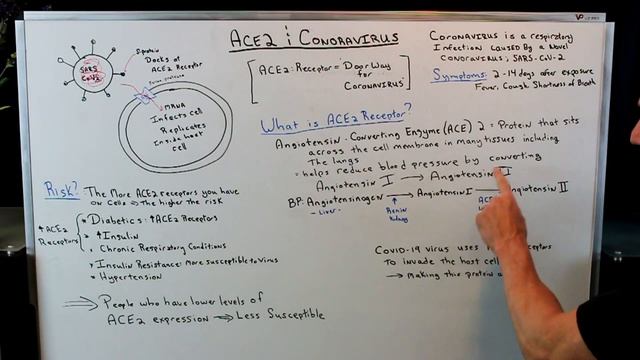 ACE2 i Conoravirus
S-protein
Docks at
ACE2 Receptor
SARS
CoV2
MRNA
Infects cell
Replicates
Inside host
cell
[ACE2: Receptor = "Door Way
for
Coronavirus"]
Coronavirus is a respiratory
Infection caused by a novel
Conoravirus, SARS-CoV-2
Symptoms: 2-14 days after exposure
Fever, Cough, Shortness of Breath
What is ACE2 Receptor?
Angiotensin-Converting Enzyme (ACE) 2 = Protein that sits
across the cell membrane in many tissues including
The lungs
= helps reduce blood pressure by converting
Angiotensin I → Angiotensin II
BP: Angiotensinogen → Angiotensin I → Angiotensin II
-Liver-
Renin
Kidney
ACE
Risk? The more ACE2 receptors you have
on Cells ⇒ The higher the risk
↑ACE2
Receptors
• Diabetics: ↑ACE2 Receptors
• ↑Insulin
• Chronic Respiratory Conditions
• Insulin Resistance: More susceptible to Virus
• Hypertension
⇒ People who have lower levels of
ACE2 expression ⇒ Less Susceptible
Covid-19 virus uses
To invade the host cell
→ Making this protein